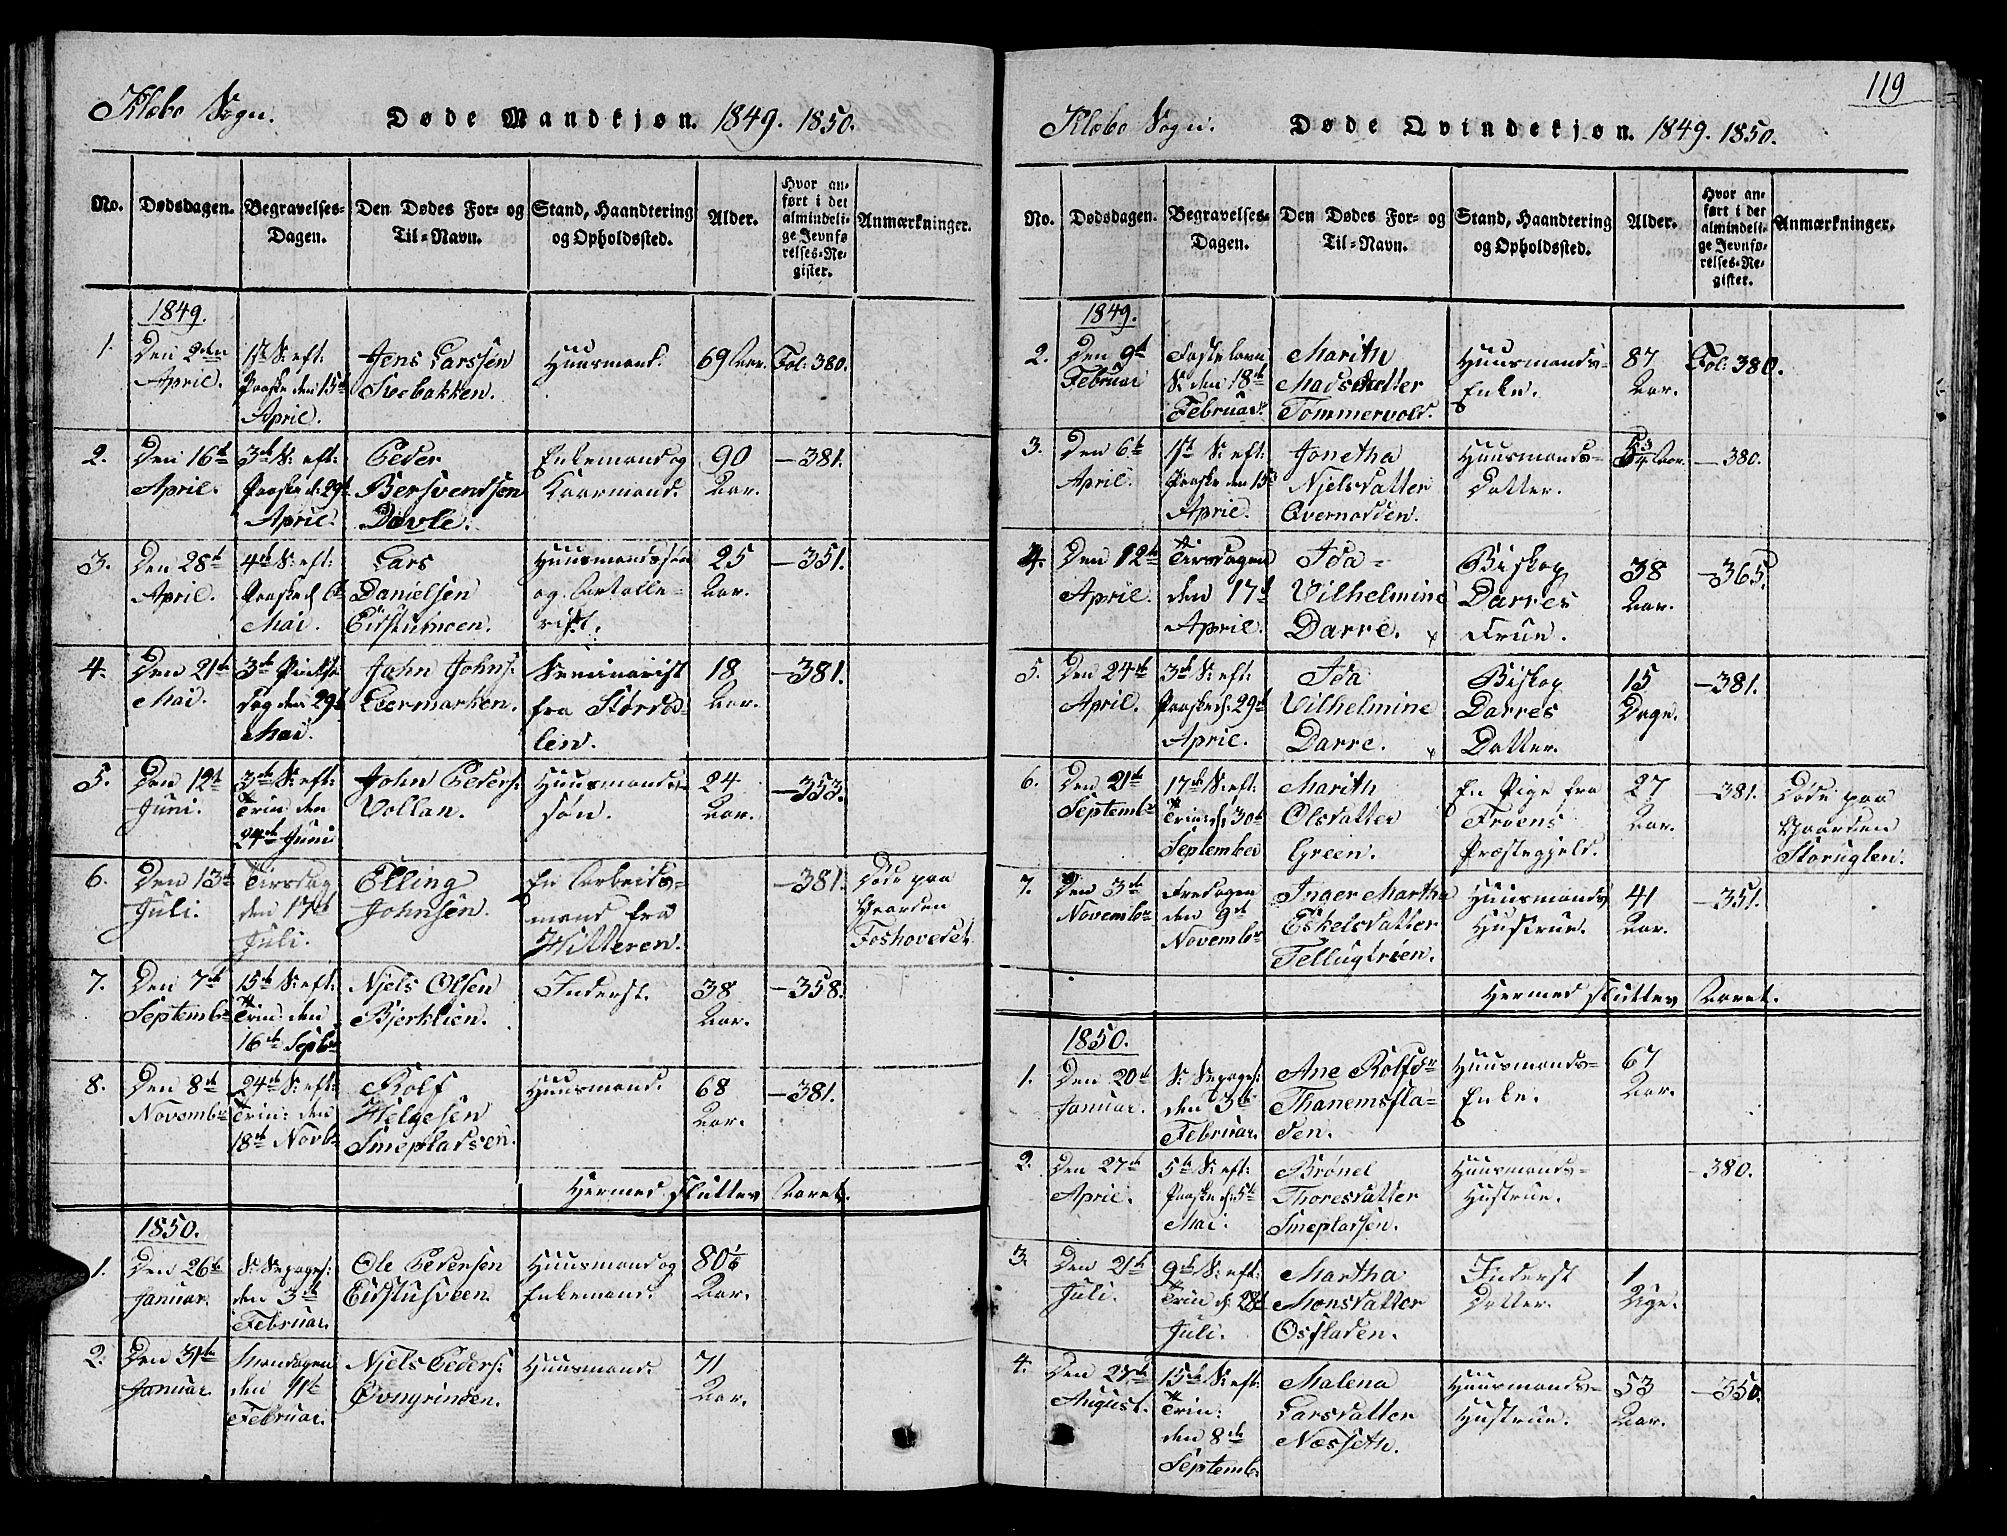 Klæbo Sogn. Døde Mandkjøn. 1849. 1850.
No. Dødsdagen. Begravelses-Dagen. Den Dødes For- og Til-Navn. Stand, Haandtering og Opholdssted. Alder. Hvor anført i det almindelige Jevnførelses-Register. Anmærkninger.
1849.
1. Den 2den April. 1ste S: eft: Paaske den 15de April. Jens Larssen Tvebakken. Huusmand. 69 Aar. Fol: 380.
2. Den 16de April. 3die S: eft: Paaske d: 29de April. Peder Bersvendsen Davle. Enkemand og Kaarmand. 90 Aar. —381.
3. Den 28de April. 4de S: eft: Paaske d. 6te Mai. Lars Danielsen Eidstumoen. Huusmandssøn og Artollerist. 25 Aar. —351.
4. Den 21de Mai. 3die Pintsedag den 29de Mai. John Johns: Leermarken. Seminarist fra Størdalen. 18 Aar. —381.
5. Den 12te Juni. 3die S: eft: Trin: den 24de Juni John Peders: Vollan. Huusmandssøn. 24 Aar. —353.
6. Den 13de Juli. Tirsdag den 17de Juli. Elling Johnsen. En Arbeidsmand fra Hitteren. —381. Døde paa Gaarden Foshovedet.
7. Den 7de Septembr 15de S: eft: Trin: den 16de Septbr Njels Olsen Bjerklien. Inderst. 38 Aar. —358.
8. Den 8de Novembr 24de S: eft: Trin: den 18de Novbr Rolf Helgesen Smepladsen. Huusmand. 68 Aar. —381.
Hermed sluttes Aaret.
1850.
1. Den 26de Januar. S: Sexages: den 3die Februar. Ole Pedersen Eidstusveen. Huusmand og Enkemand. 80 Aar.
2. Den 31te Januar. Mandagen den 11te Februar. Njels Peders: Øvngrinden. Huusmand. 71 Aar.
119
Klæbo Sogn. Døde Qvindekjøn. 1849. 1850.
No. Dødsdagen. Begravelses-Dagen. Den Dødes For- og Til-Navn. Stand, Haandtering og Opholdssted. Alder. Hvor anført i det almindelige Jevnførelses-Register. Anmærkninger.
1849.
2. Den 9de Februar Fastelavns S: den 18de Februar. Marith Madsdatter Tommervold. Huusmands-Enke. 87 Aar. Fol: 380.
3. Den 6te April. 1ste S: eft: Paaske den 15de April. Jonetha Njelsdatter Overnodden. Huusmands-Datter. Aar. —380.
4. Den 12te April. Tirsdagen den 17de April. Ida Vilhelmine Darre. Biskop Darres Frue. 38 Aar. —365.
5. Den 24de April. 3die S: eft: Paaske d: 29de April. Ida Vilhelmine Darre. Biskop Darres Datter. 15 Dage. —381.
6. Den 21de Septembr 17de S: eft: Trin: d. 30de September Marith Olsdatter Green. En Pige fra Froens Præstegjeld. 27 Aar. —381. Døde paa Gaarden Storuglen.
7. Den 3die Novembr Fredagen den 9de Novembr Inger Martha Eskelsdatter Tellugtrøen. Huusmands Hustrue. 41 Aar. —351.
Hermed sluttes Aaret.
1850.
1. Den 20de Januar. S: Sexages: den 3die Februar. Ane Rolfsdr Thanemsfladen. Huusmands-Enke. 67 Aar.
2. Den 27de April. 5te S: eft: Paaske d: 5te Mai. Brønel Thoresdatter Smepladsen. Huusmands-Hustrue. —380.
3. Den 21de Juli. 9de S: eft: Trin d: 28de Juli. Martha Monsdatter Osfladen. Inderst Datter. 1 Uge.
4. Den August. 15de S: eft: Trin: den 8de Septemb: Malena Larsdatter Næsseth. Huusmands-Hustrue. 53 Aar. —350.